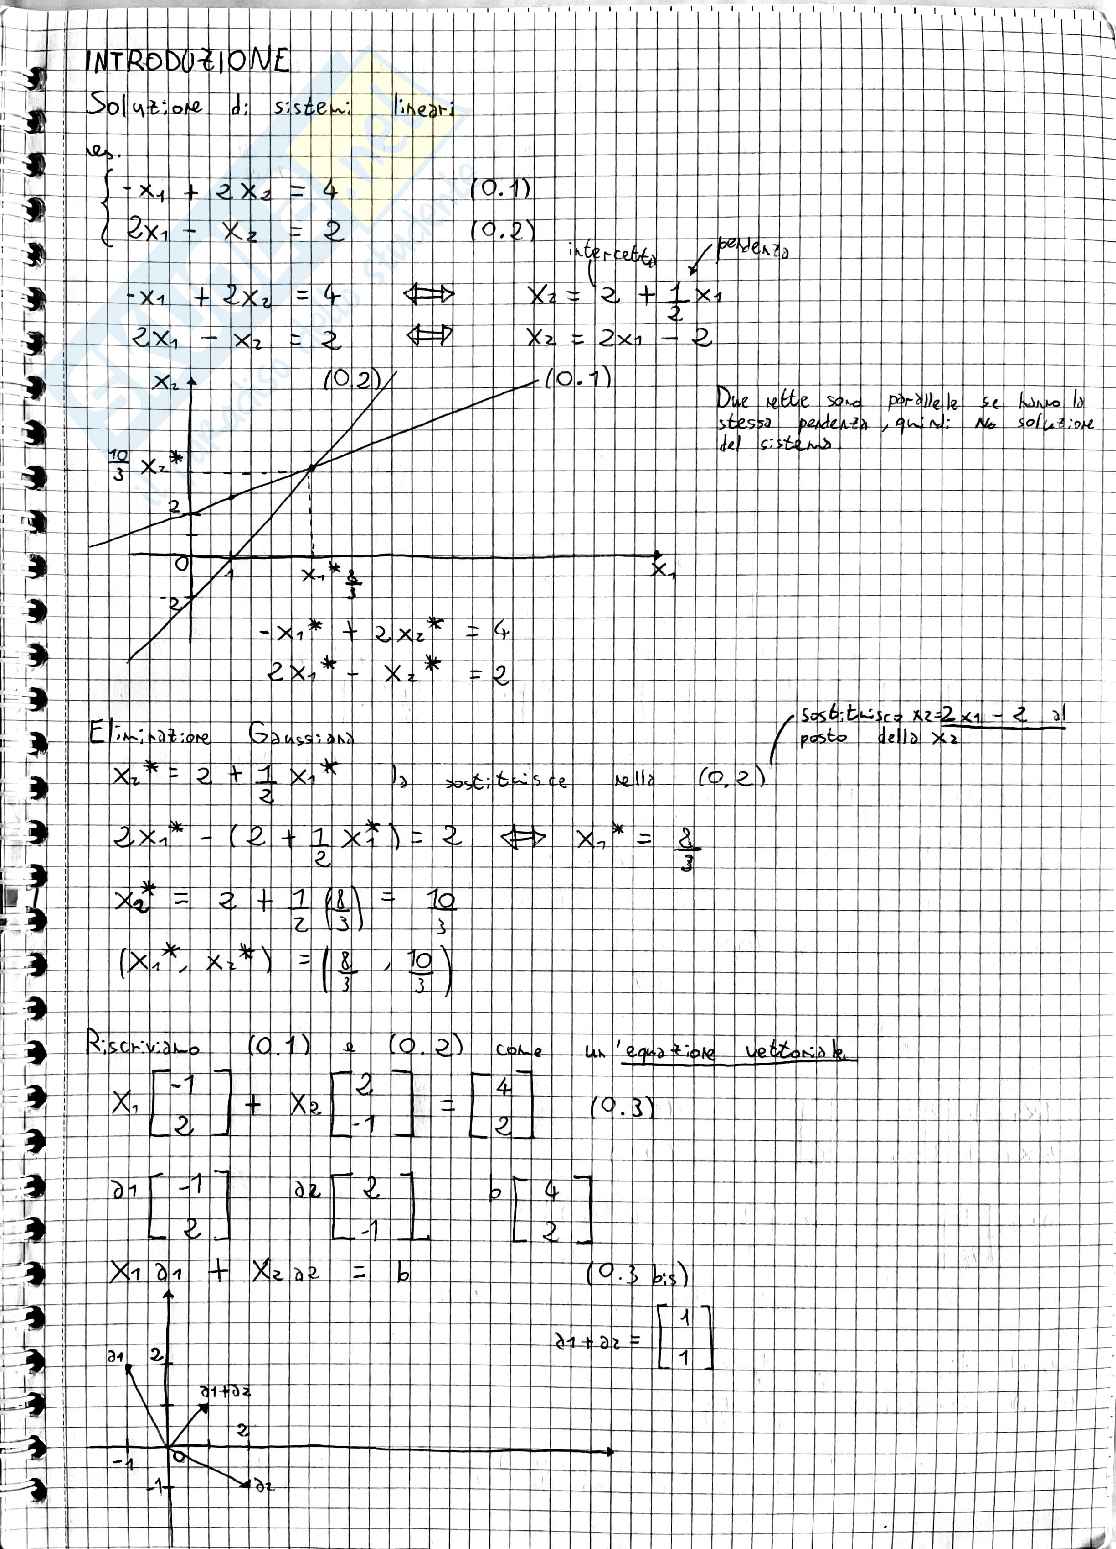 INTRODUZIONE
Soluzione di sistemi lineari
es.
{ -x₁ + 2x₂ = 4 (0.1)
2x₁ - x₂ = 2 (0.2)
intercetta pendenza
-x₁ + 2x₂ = 4 ⟺ x₂ = 2 + 1/2 x₁
2x₁ - x₂ = 2 ⟺ x₂ = 2x₁ - 2
x₂ (0.2) (0.1)
Due rette sono parallele se hanno la
stessa pendenza, quindi No soluzione
del sistema
10/3 x₂*
2
0 1 x₁* 8/3 x₁
-2
-x₁* + 2x₂* = 4
2x₁* - x₂* = 2
sostituisco x2=2x1-2 al
posto della x2
Eliminazione Gaussiana
x₂* = 2 + 1/2 x₁* la sostituisce nella (0.2)
2x₁* - (2 + 1/2 x₁*) = 2 ⟺ x₁* = 8/3
x₂* = 2 + 1/2 (8/3) = 10/3
(x₁*, x₂*) = (8/3, 10/3)
Riscriviamo (0.1) e (0.2) come un'equazione vettoriale
x₁ [-1 2] + x₂ [2 -1] = [4 2] (0.3)
a1 [-1 2] a2 [2 -1] b [4 2]
x₁a1 + x₂a2 = b (0.3 bis)
a1+a2 = [1 1]
a1 2
a1+a2
2
-1 0
-1 a2